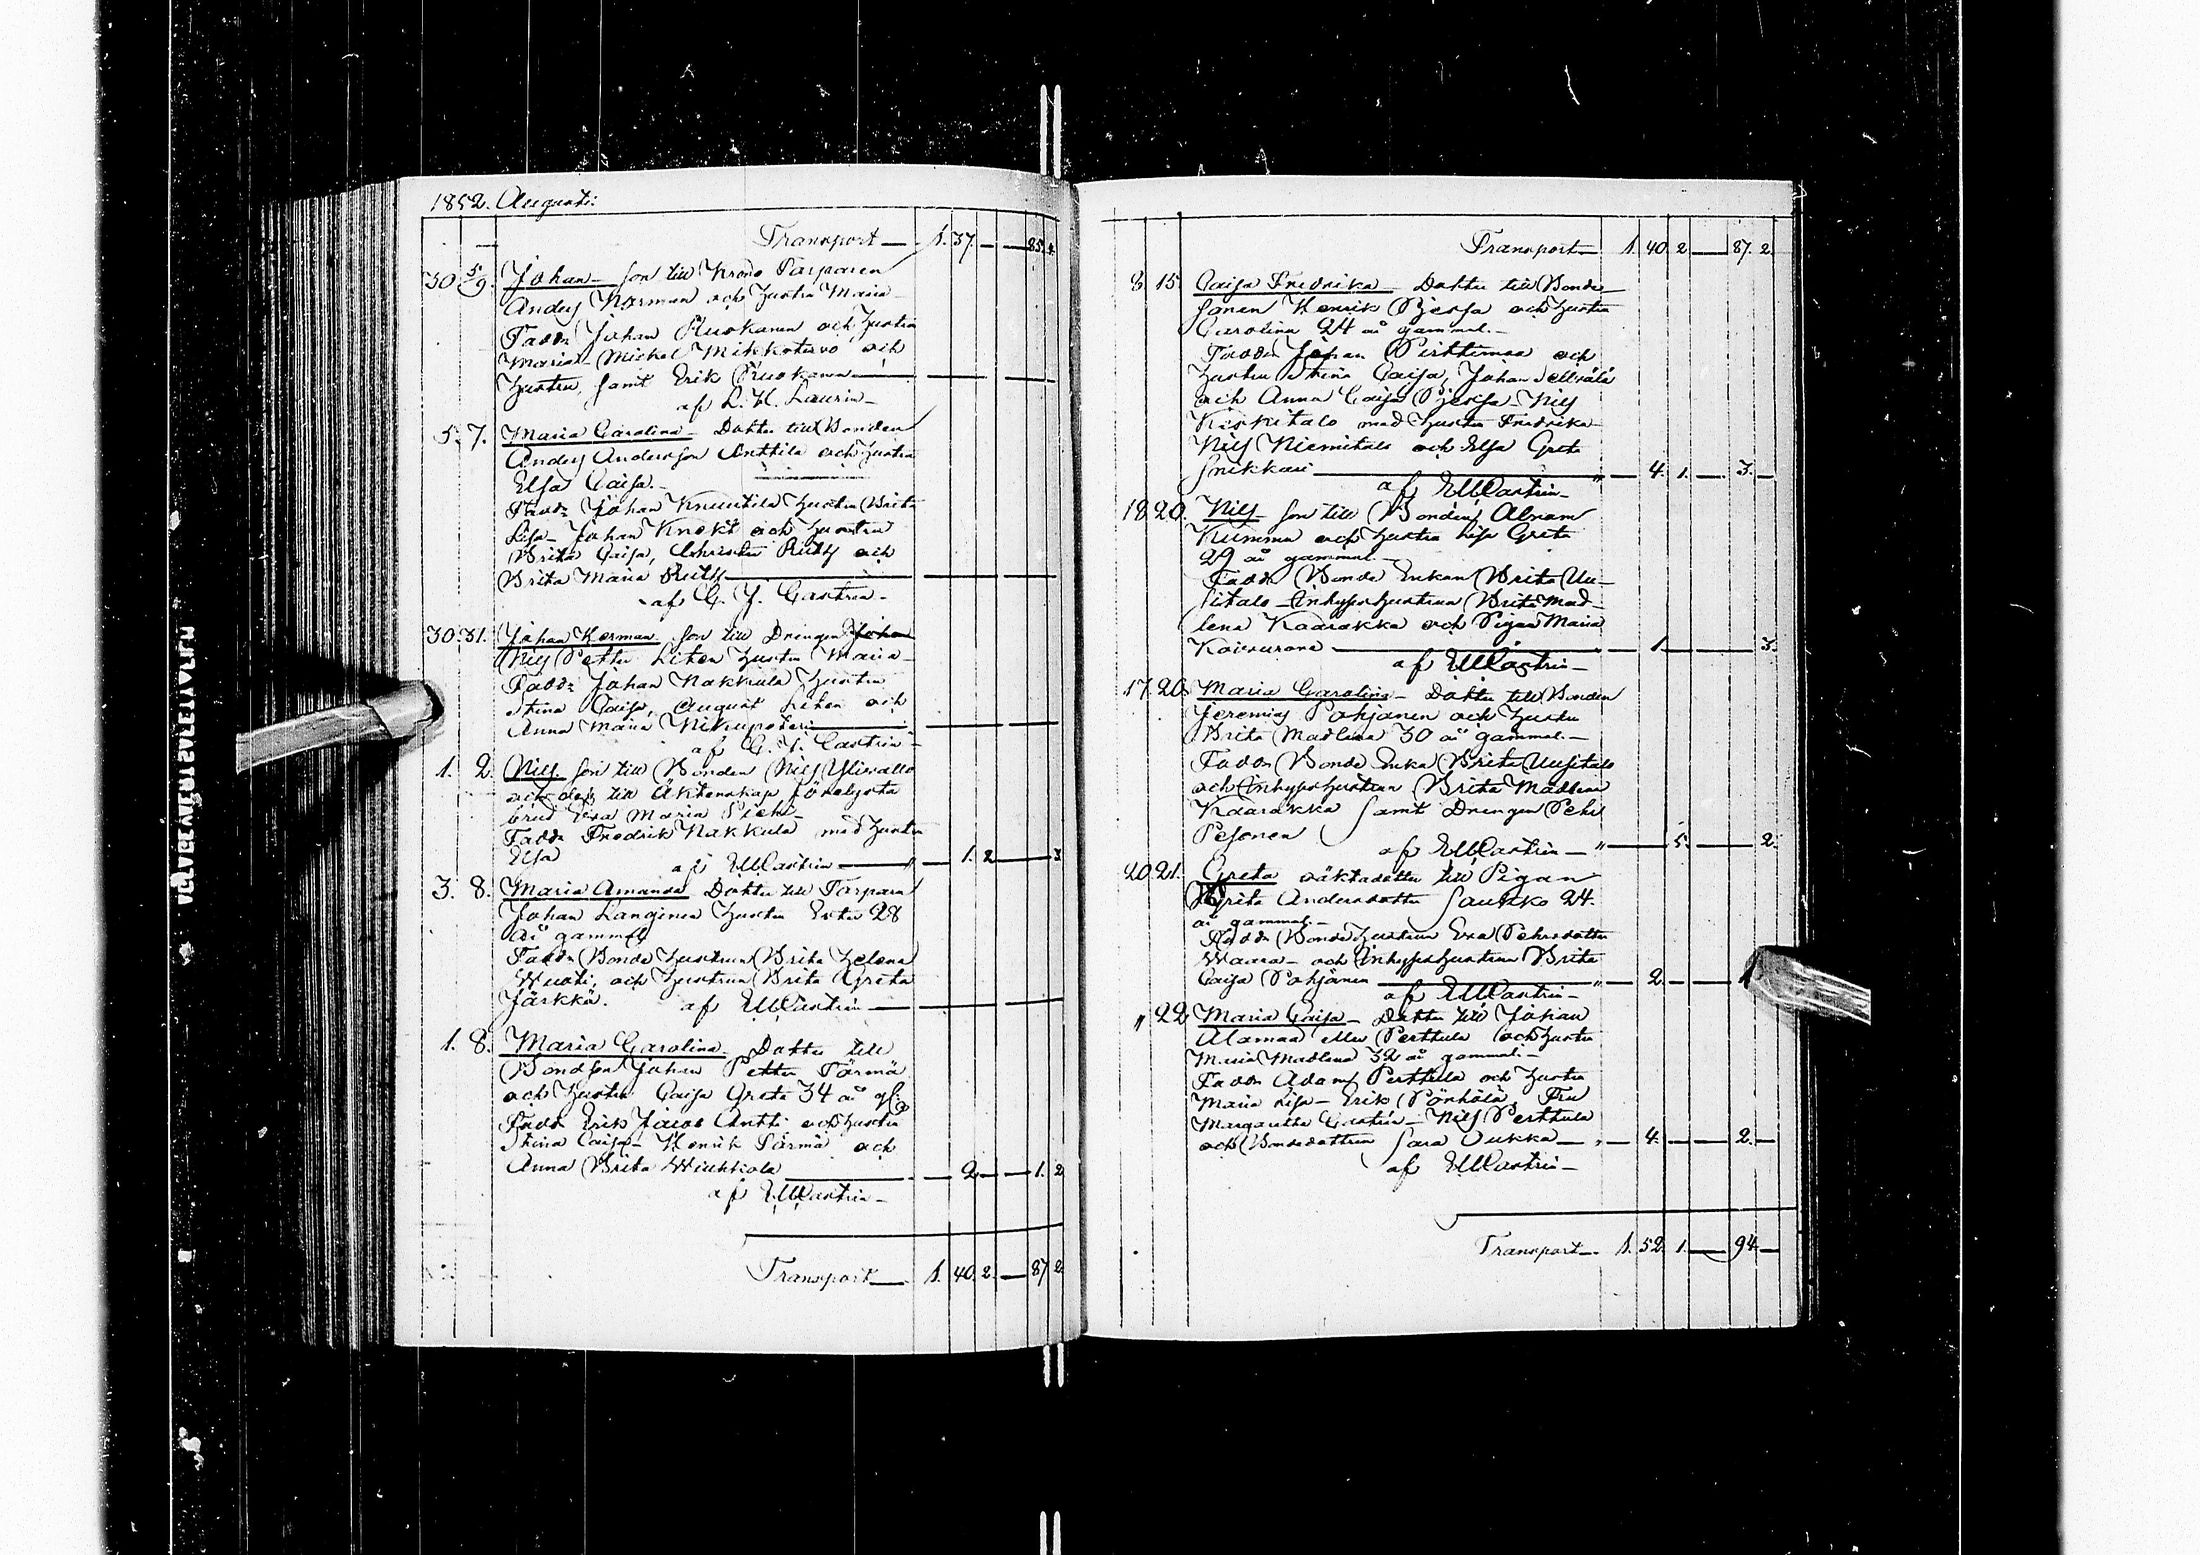 1852. Augusti:
Transport — 1. 37. — — 85. 4
30 5/9 Johan — son till Krono Torparen
Anders Norman och hustru Maria
Fadd: Johan Ruokanen och hustru
Maria — Michel Mikkotervo och
hustru, samt Erik Ruokanen
af L. H. Laurin —
5. 7. Maria Carolina — Dotter till Bonden
Anders Andersson Anttila och hustru
Elsa Caisa. —
Fadd: Johan Knuutila hustru Brita
Lisa — Johan Knekt och hustru
Brita Caisa, Christer Ruth och
Brita Maria Ruth
af G. J. Castrén —
30. 31. Johan Herman son till Drengen Johan
Nils Petter Liten hustru Maria —
Fadd: Johan Nakkula hustru
Stina Caisa, August Liten och
Anna Maria Nikupeteri
af G. J. Castrén —
1. 2. Nils son till Bonden Nils Yliruokko
och dess till Äktenskap förelofsta
brud Eva Maria Pieti —
Fadd: Fredrik Nakkula med hustru
Elsa af EMCastrén — " — 1. 2 — 3
3. 8. Maria Amanda Dotter till Torparn
Johan Langinen hustru Ester 28
år gammal
Fadd: Bonde hustrun Brita Helena
Wuoti, och hustrun Brita Greta
Järkkä. af EMCastrén —
1. 8. Maria Carolina. Dotter till
Bondson Johan Petter Pärmä
och hustru Caisa Greta 34 år gl:
Fadd Erik Jacob Antti och hustru
Stina Caisa — Henrik Pärmä och
Anna Brita Wiukkola — 2 — — 1. 2
af EMCastrén —
Transport — 1. 40. 2. — 87 2
Transport — 1. 40. 2 — 87. 2.
8. 15. Caisa Fredrika — Dotter till Bonde
sonen Henrik Pjessa och hustru
Carolina 24 år gammal. —
Fadd: Johan Pirttimaa och
hustru Stina Caisa, Johan Mrälä
och Anna Caisa Pjessa — Nils
Kiskitalo med hustru Fredrika —
Nils Niemitalo och Elsa Greta
Snikkari — " — 4. 1. — 3. —
af EMCastrén —
18. 20. Nils — son till Bonden Abram
Kumma och hustru Lisa Greta
29 år gammal —
Fadd: Bonde Enkan Brita Uu-
sitalo — Inhyses hustrun Brita Mad-
lena Kaarakka och Pigan Maria
Kaisurova — " — 1. — 3.
af EMCastrén —
17. 20. Maria Carolina — Dotter till Bonden
Jeremias Pohjanen och hustru
Brita Madlena 30 år gammal. —
Fadd: Bonde Enka Brita Uusitalo
och Inhyses hustrun Brita Madlena
Kaarakka samt Drengen Pehr
Pesonen af EMCastrén — " — 5. — 2.
20. 21. Greta oäkta dotter till Pigan
Brita Andersdotter Sautko 24.
år gammal. —
Fadd: Bonde hustrun Eva Pehrsdotter
Waara — och Inhyses hustrun Brita
Caisa Pohjanen — " — 2. —
af EMCastrén —
" 22 Maria Caisa — Dotter till Johan
Alamaa eller Perttula och hustru
Maria Madlena 32 år gammal. —
Fadd: Adam Perttula och hustru
Maria Lisa — Erik Pörhölä, Fru
Margaretha Castrén — Nils Perttula
och Bondedottern Sara Oukka — " — 4. — 2. —
af EMCastrén —
Transport — 1. 52. 1. — 94. —